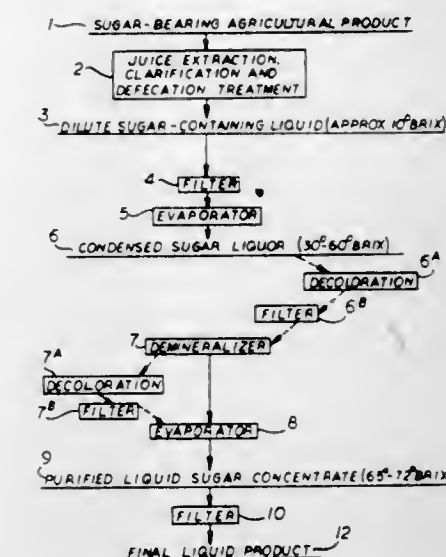 1 SUGAR-BEARING AGRICULTURAL PRODUCT
2 JUICE EXTRACTION,
CLARIFICATION AND
DEFECATION TREATMENT
3 DILUTE SUGAR-CONTAINING LIQUID (APPROX 10° BRIX)
4 FILTER
5 EVAPORATOR
6 CONDENSED SUGAR LIQUOR (30°-60° BRIX)
6A
DECOLORATION
FILTER 6B
7 DEMINERALIZER
7A
DECOLORATION
7B FILTER
EVAPORATOR 8
9
PURIFIED LIQUID SUGAR CONCENTRATE (65°-72° BRIX
FILTER 10
FINAL LIQUID PRODUCT 12